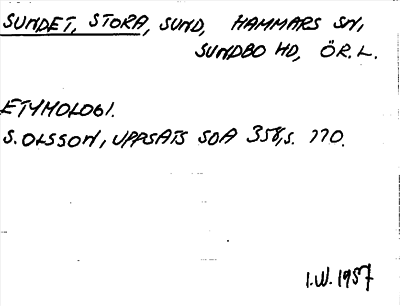 SUNDET, STORA, SUND, HAMMARS SN,
SUNDBO HD, ÖR. L.
ETYMOLOGI.
S. OLSSON, UPPSATS SOA 358, S. 170.
I.W. 1957